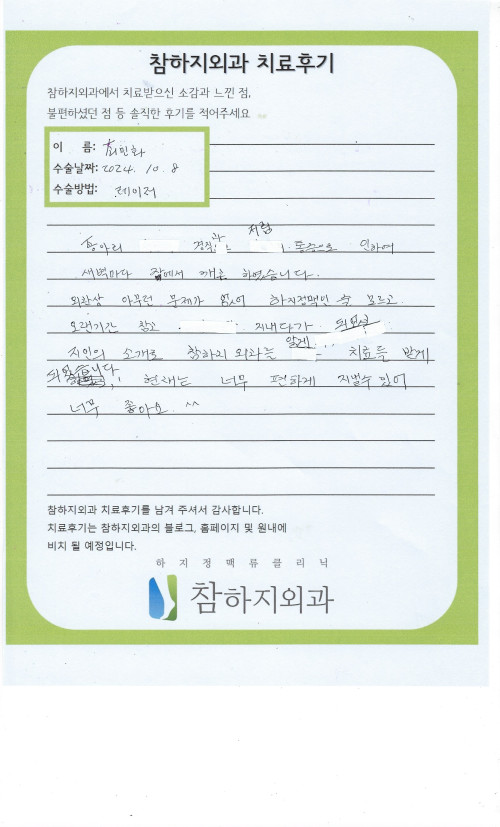 참하지외과 치료후기
참하지외과에서 치료받으신 소감과 느낀 점,
불편하셨던 점 등 솔직한 후기를 적어주세요
이 름: 최민화
수술날짜: 2024. 10. 8
수술방법: 레이저
종아리 경직과 처럼 통증으로 인하여
새벽마다 잠에서 깨곤 하였습니다.
외관상 아무런 문제가 없어 하지정맥인 줄 모르고
오랜기간 참고 지내다가
지인의 소개로 참하지외과를 알게 되어 치료를 받게
되었습니다. 현재는 너무 편하게 지낼수 있어
너무 좋아요. ^^
참하지외과 치료후기를 남겨 주셔서 감사합니다.
치료후기는 참하지외과의 블로그, 홈페이지 및 원내에
비치 될 예정입니다.
하지정맥류클리닉
참하지외과